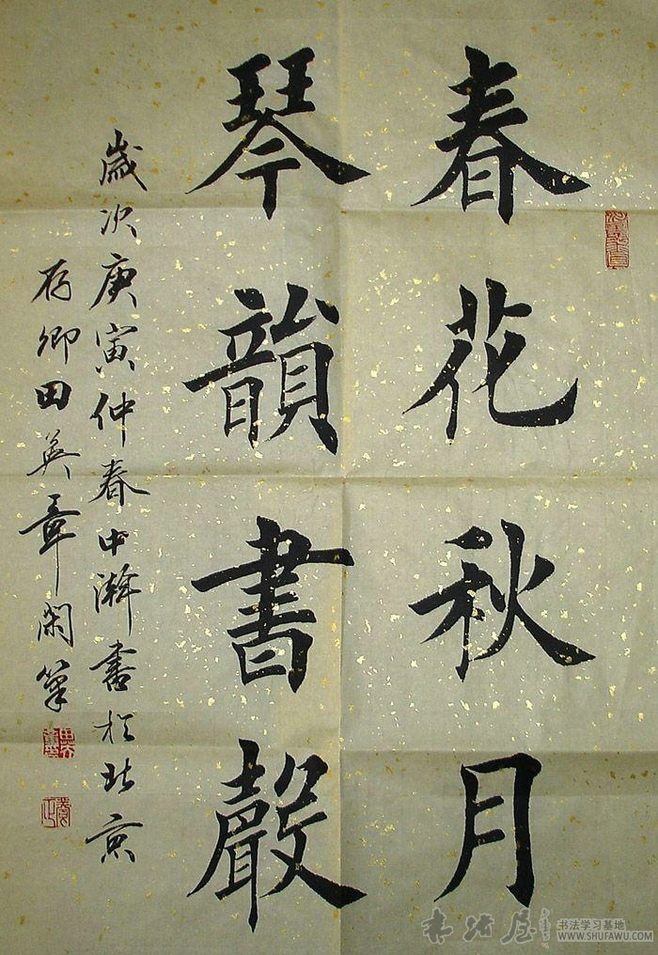 春花秋月
琴韻書聲
歲次庚寅仲春中澣書於北京
存卿田英章閑筆
书法屋
书法学习基地
WWW.SHUFAWU.COM